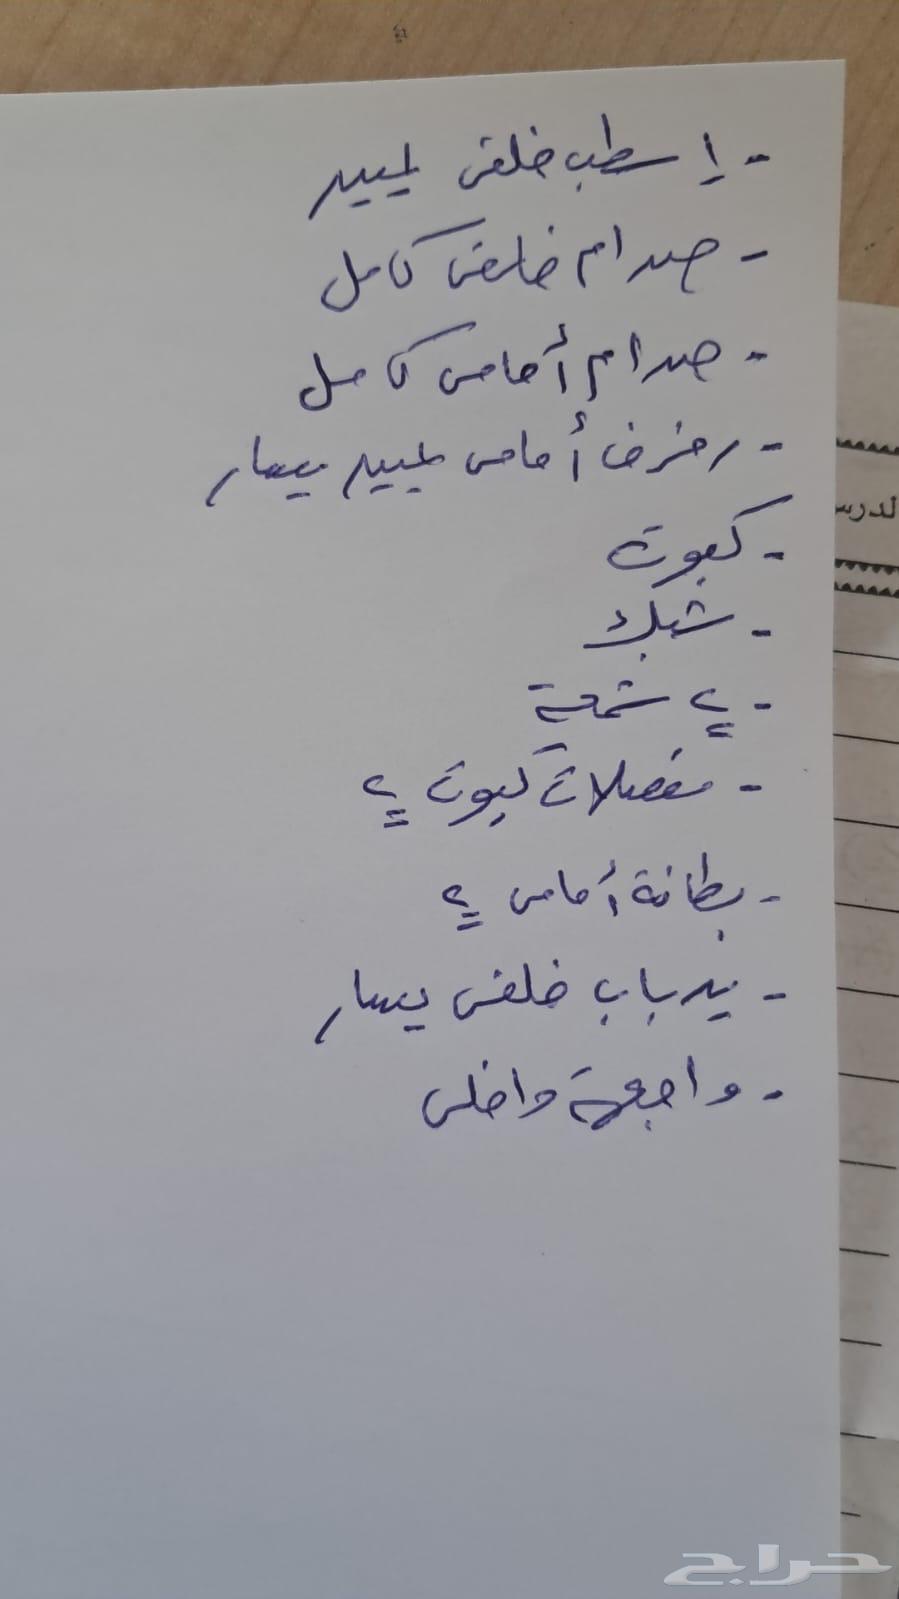 - إسطب خلفي يمين
- صدام خلفي كامل
- صدام أمامي كامل
- رفرف أمامي يمين يسار
- كبوت
- شبك
- ٢ شمعة
- مفصلات كبوت ٢
- بطانة أمامي ٢
- يد باب خلفي يسار
- واجهة داخلي
لدرس
حراج